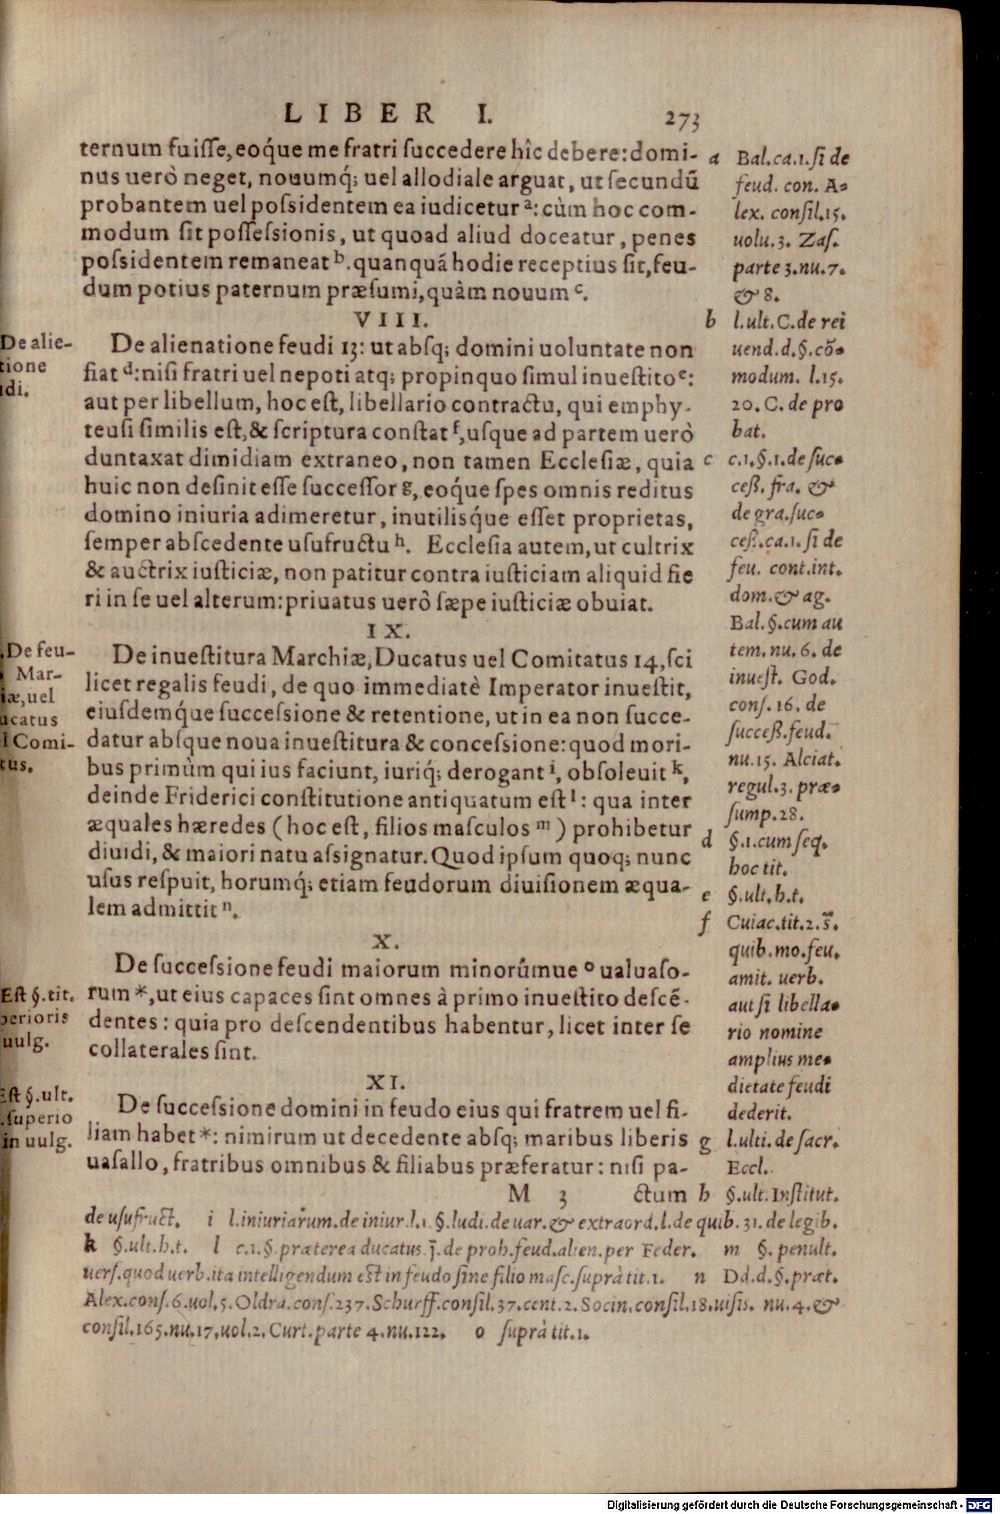 LIBER I. 273
ternum fuiſſe, eoq́ue me fratri ſuccedere hîc debere: domi-
nus uerò neget, nouumq́; uel allodiale arguat, ut ſecundū
probantem uel poſsidentem ea iudicetur ᵃ: cùm hoc com-
modum ſit poſſeſsionis, ut quoad aliud doceatur, penes
poſsidentem remaneat ᵇ. quanquã hodie receptius ſit, feu-
dum potius paternum præſumi, quàm nouum ᶜ.
VIII.
De alienatione feudi 13: ut abſq; domini uoluntate non
fiat ᵈ: niſi fratri uel nepoti atq; propinquo ſimul inueſtito ᵉ:
aut per libellum, hoc eſt, libellario contractu, qui emphy-
teuſi ſimilis eſt, & ſcriptura conſtat ᶠ, uſque ad partem uerò
duntaxat dimidiam extraneo, non tamen Eccleſiæ, quia
huic non deſinit eſſe ſucceſſor ᵍ, eoq́ue ſpes omnis reditus
domino iniuria adimeretur, inutilisq́ue eſſet proprietas,
ſemper abſcedente uſufructu ʰ. Eccleſia autem, ut cultrix
& auctrix iuſticiæ, non patitur contra iuſticiam aliquid fie
ri in ſe uel alterum: priuatus uerò ſæpe iuſticiæ obuiat.
IX.
De inueſtitura Marchiæ, Ducatus uel Comitatus 14, ſci
licet regalis feudi, de quo immediatè Imperator inueſtit,
eiuſdemq́ue ſucceſsione & retentione, ut in ea non ſucce-
datur abſque noua inueſtitura & conceſsione: quod mori-
bus primùm qui ius faciunt, iuriq́; derogant ⁱ, obſoleuit ᵏ,
deinde Friderici conſtitutione antiquatum eſt ˡ: qua inter
æquales hæredes (hoc eſt, filios maſculos ᵐ) prohibetur
diuidi, & maiori natu aſsignatur. Quod ipſum quoq; nunc
uſus reſpuit, horumq́; etiam feudorum diuiſionem æqua-
lem admittit ⁿ.
X.
De ſucceſsione feudi maiorum minorúmue ᵒ ualuaſo-
rum *, ut eius capaces ſint omnes à primo inueſtito deſcẽ-
dentes: quia pro deſcendentibus habentur, licet inter ſe
collaterales ſint.
XI.
De ſucceſsione domini in feudo eius qui fratrem uel fi-
liam habet *: nimirum ut decedente abſq; maribus liberis
uaſallo, fratribus omnibus & filiabus præferatur: niſi pa-
M 3 ctum
De alie-
tione
idi.
De feu-
Mar-
iæ, uel
ucatus
l Comi-
tus.
Eſt §. tit.
perioris
uulg.
Eſt §. ult.
ſuperio
in uulg.
a Bal. ca. 1. ſi de
feud. con. A-
lex. conſil. 15.
uolu. 3. Zaſ.
parte 3. nu. 7.
& 8.
b l. ult. C. de rei
uend. d. §. cõ-
modum. l. 15.
20. C. de pro
bat.
c c. 1. §. 1. de ſuc-
ceß. fra. &
de gra. ſuc-
ceß. ca. 1. ſi de
feu. cont. int.
dom. & ag.
Bal. §. cum au
tem. nu. 6. de
inueſt. God.
conſ. 16. de
ſucceß. feud.
nu. 15. Alciat.
regul. 3. præ-
ſump. 28.
d §. 1. cum ſeq.
hoc tit.
e §. ult. h. t.
f Cuiac. tit. 2. §.
quib. mo. feu.
amit. uerb.
aut ſi libella-
rio nomine
amplius me-
dietate feudi
dederit.
g l. ulti. de ſacr.
Eccl.
h §. ult. Inſtitut.
de uſufruct. i l. iniuriarum. de iniur. l. 1. §. ludi. de uar. & extraord. l. de quib. 31. de legib.
k §. ult. h. t. l c. 1. §. præterea ducatus. j. de proh. feud. alien. per Feder. m §. penult.
uerſ. quod uerb. ita intelligendum eſt in feudo ſine filio maſc. ſuprà tit. 1. n Dd. d. §. præt.
Alex. conſ. 6. uol. 5. Oldra. conſ. 237. Schurff. conſil. 37. cent. 2. Socin. conſil. 18. uiſis. nu. 4. &
conſil. 165. nu. 17. uol. 2. Curt. parte 4. nu. 122. o ſuprà tit. 1.
Digitalisierung gefördert durch die Deutsche Forschungsgemeinschaft - DFG